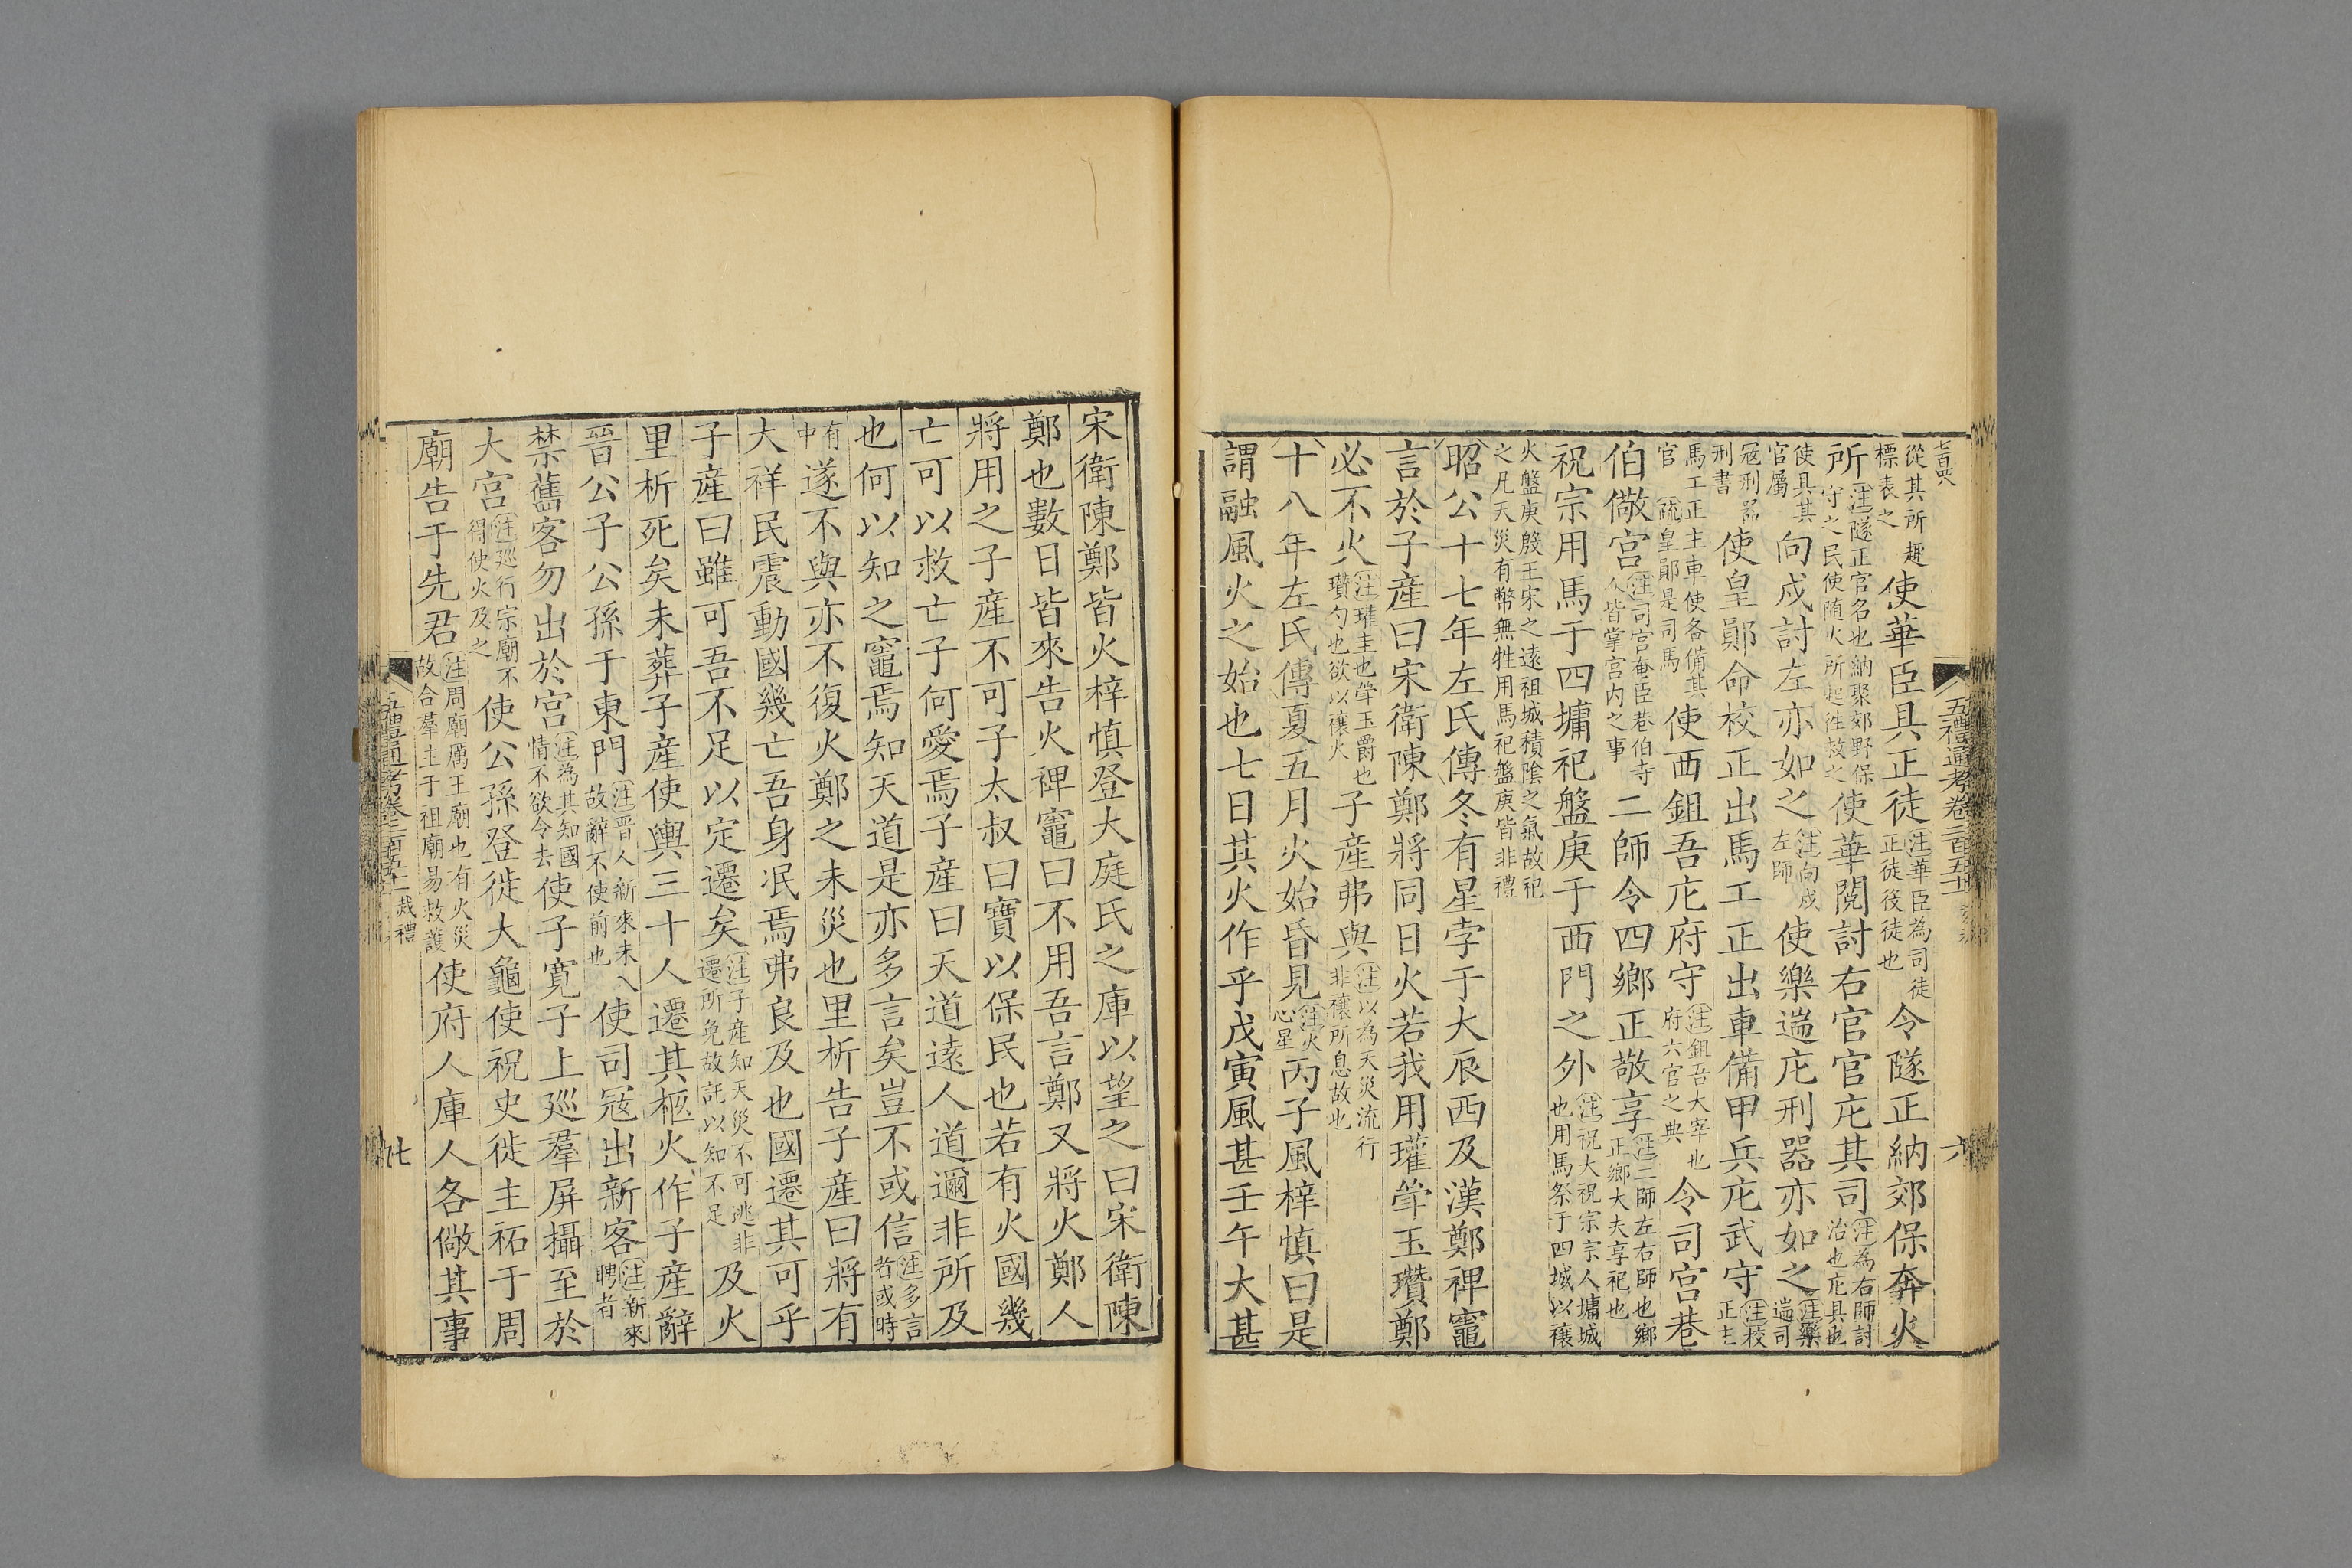 五禮通考卷二百五十
六
從其所趣標表之使華臣具正徒注華臣為司徒正徒役徒也令隧正納郊保奔火
所注隧正官名也納聚郊野保守之民使隨火所起徃救之使華閱討右官官庀其司注為右師討治也庀具也
使具其官屬向戍討左亦如之注向戍左師使樂遄庀刑器亦如之注樂遄司
寇刑器刑書使皇鄖命校正出馬工正出車備甲兵庀武守注校正主
馬工正主車使各備其官疏皇鄖是司馬使西鉏吾庀府守注鉏吾大宰也府六官之典令司宮巷
伯儆宮注司宮奄臣巷伯寺人皆掌宮内之事二師令四鄉正敬享注二師左右師也鄉正鄉大夫享祀也
祝宗用馬于四墉祀盤庚于西門之外注祝大祝宗宗人墉城也用馬祭于四城以禳
火盤庚殷王宋之遠祖城積陰之氣故祀之凡天災有幣無牲用馬祀盤庚皆非禮
昭公十七年左氏傳冬有星孛于大辰西及漢鄭裨竈
言於子產曰宋衛陳鄭將同日火若我用瓘斝玉瓚鄭
必不火注瓘圭也斝玉爵也瓚勺也欲以禳火子產弗與注以為天災流行非禳所息故也
十八年左氏傳夏五月火始昏見注火心星丙子風梓慎曰是
謂融風火之始也七日其火作乎戊寅風甚壬午大甚
宋衛陳鄭皆火梓慎登大庭氏之庫以望之曰宋衛陳
鄭也數日皆來告火裨竈曰不用吾言鄭又將火鄭人
將用之子產不可子太叔曰寶以保民也若有火國幾
亡可以救亡子何愛焉子產曰天道遠人道邇非所及
也何以知之竈焉知天道是亦多言矣豈不或信注多言者或時
有中遂不與亦不復火鄭之未災也里析告子產曰將有
大祥民震動國幾亡吾身泯焉弗良及也國遷其可乎
子產曰雖可吾不足以定遷矣注子產知天災不可逃非遷所免故託以知不足及火
里析死矣未葬子產使輿三十人遷其柩火作子產辭
晉公子公孫于東門注晉人新來未入故辭不使前也使司寇出新客注新來聘者
禁舊客勿出於宮注為其知國情不欲令去使子寛子上巡羣屏攝至於
大宮注巡行宗廟不得使火及之使公孫登徙大龜使祝史徙主祏于周
廟告于先君注周廟厲王廟也有火災故合羣主于祖廟易救護使府人庫人各儆其事